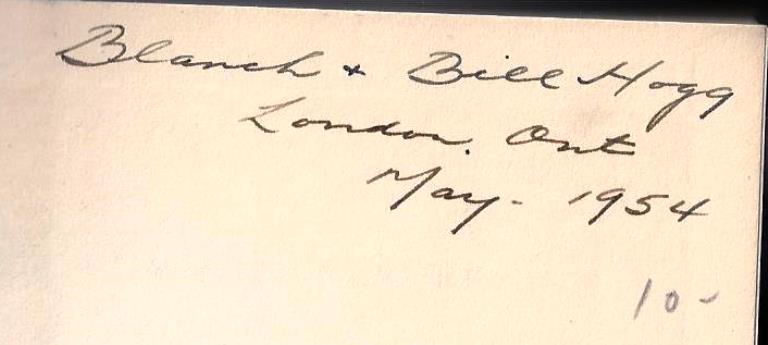 Blanch + Bill Hogg
London. Ont
May - 1954
10-